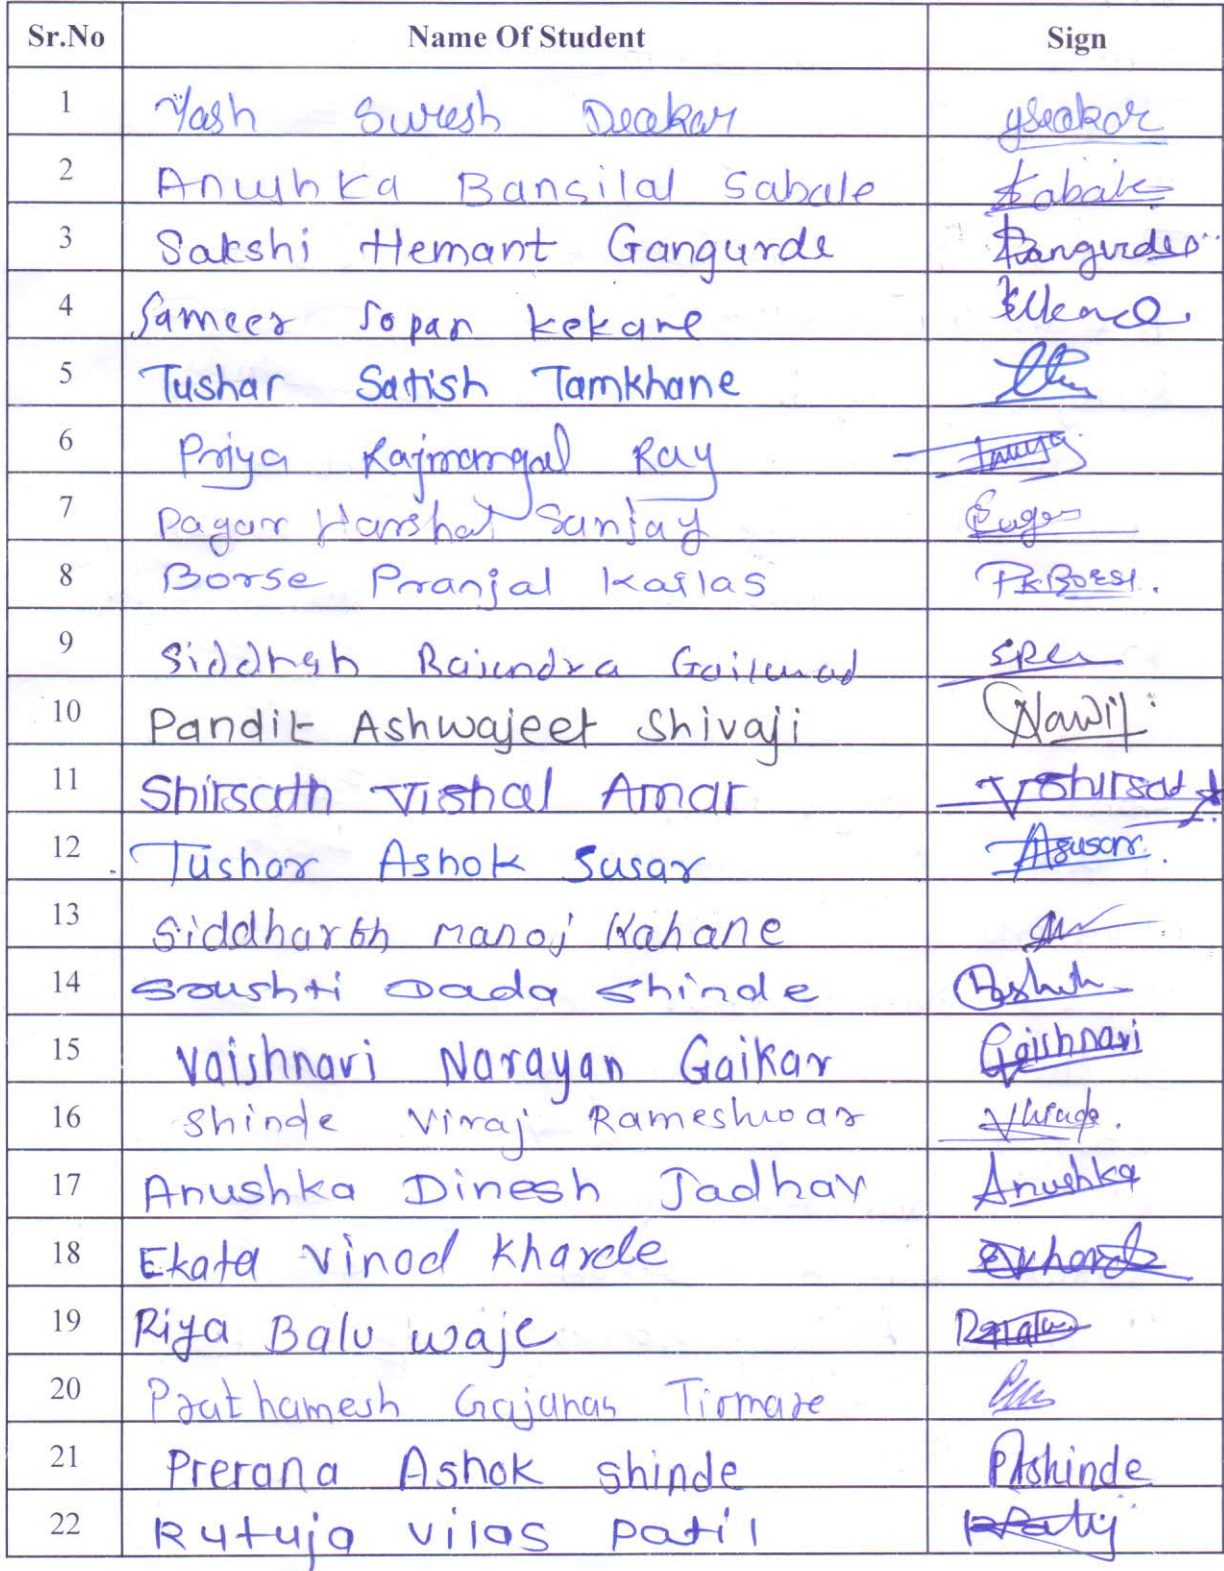 Sr.No Name Of Student Sign
1 Yash Suresh Deokar yseokar
2 Anushka Bansilal Sabale Sabale
3 Sakshi Hemant Gangurde Gangurde
4 Sameer Sopan Kekane
5 Tushar Satish Tamkhane
6 Priya Rajmangal Ray
7 Pagar Harshal Sanjay
8 Borse Pranjal Kailas PKBorse.
9 Siddhesh Rajendra Gaikwad
10 Pandit Ashwajeet Shivaji
11 Shirsath Vishal Amar VShirsat
12 Tushar Ashok Susar Asusar.
13 Siddharth Manoj Kahane
14 Srushti Dada Shinde
15 Vaishnavi Narayan Gaikar Gaishnavi
16 Shinde Viraj Rameshwar
17 Anushka Dinesh Jadhav Anushka
18 Ekata Vinod Kharde
19 Riya Balu Waje
20 Prathamesh Gajanan Tirmare
21 Prerana Ashok Shinde PAshinde
22 Rutuja Vilas Patil